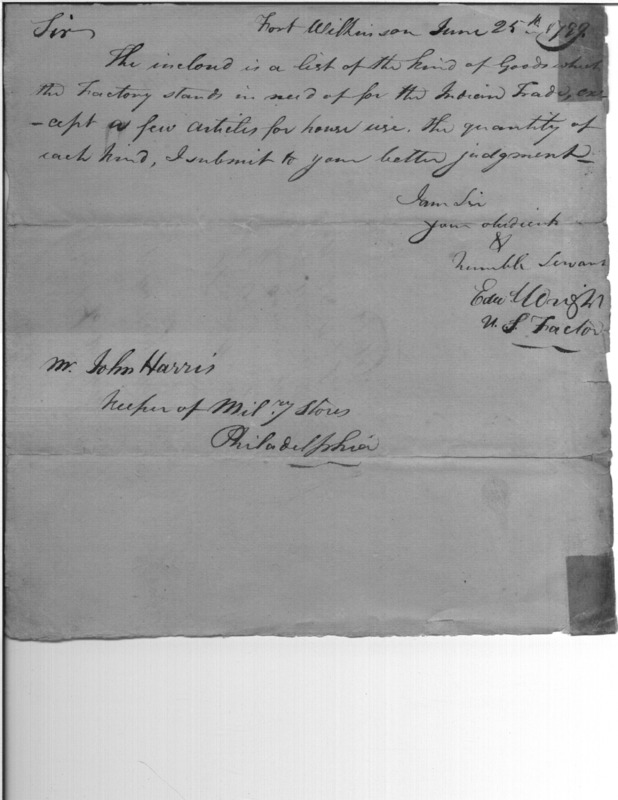 Sir Fort Wilkinson June 25th 1799
The inclosd is a list of the kind of Goods which
the Factory stands in need of for the Indian Trade, ex
-cept a few articles for house use. The quantity of
each kind, I submit to your better judgment
I am Sir
your obedient
&
humble Servant
Edwd Wright
U. S. Factor
Mr. John Harris
Keeper of Mily. Stores
Philadelphia